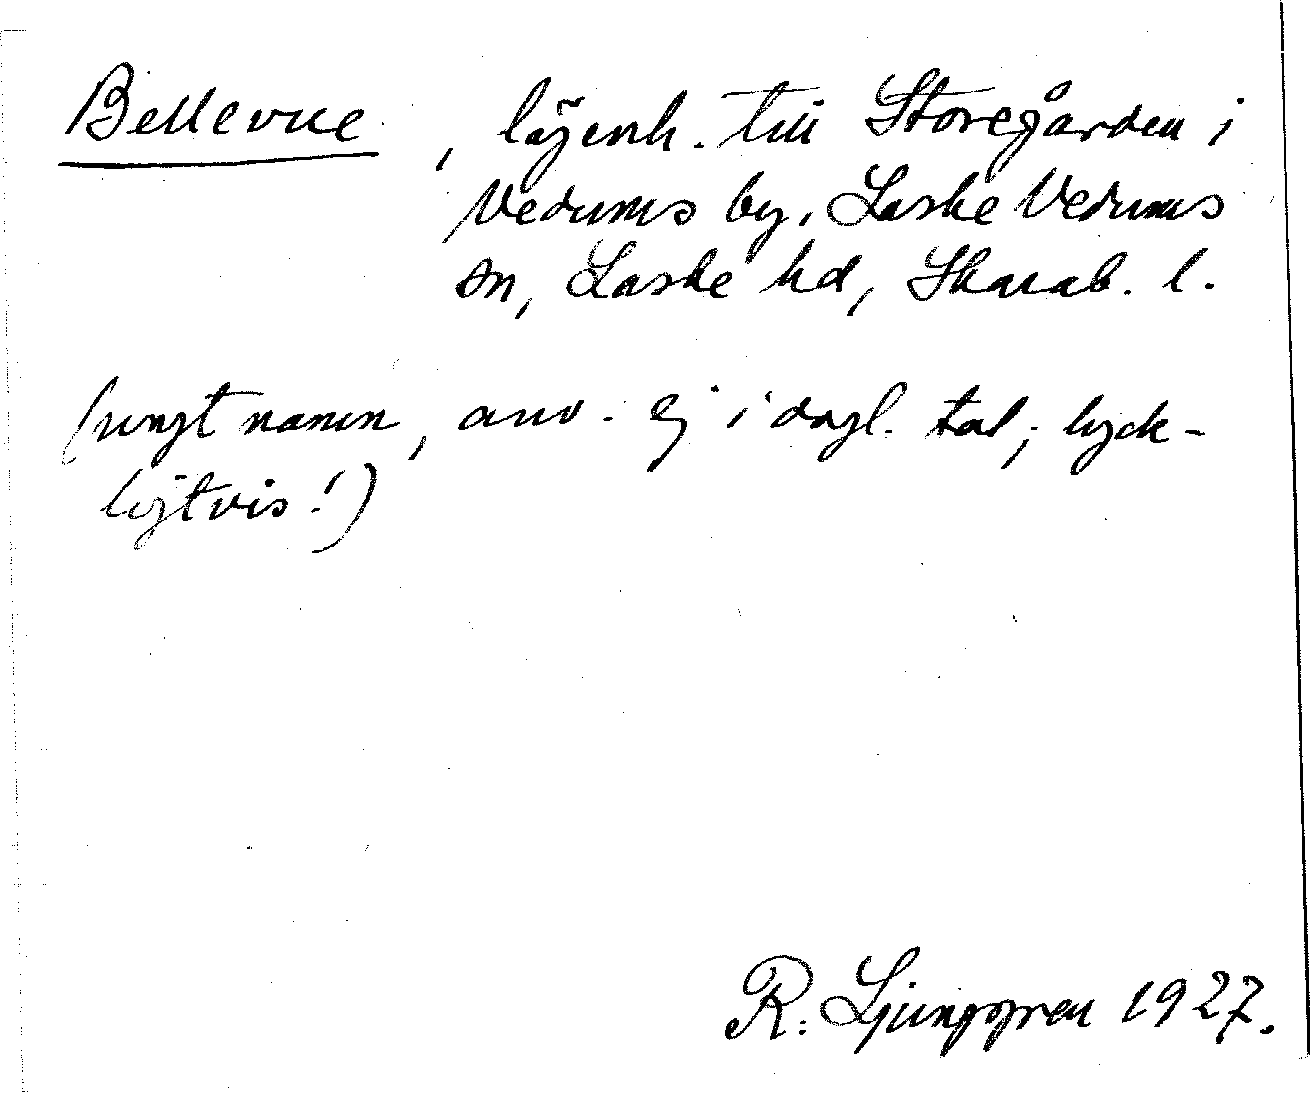 Bellevue, lägenh. till Storegården i
Vedums by, Laske Vedums
sn, Laske hd, Skarab. l.
(ungt namn, anv. ej i dagl. tal, lyck-
ligtvis!)
R. Ljunggren 1927.